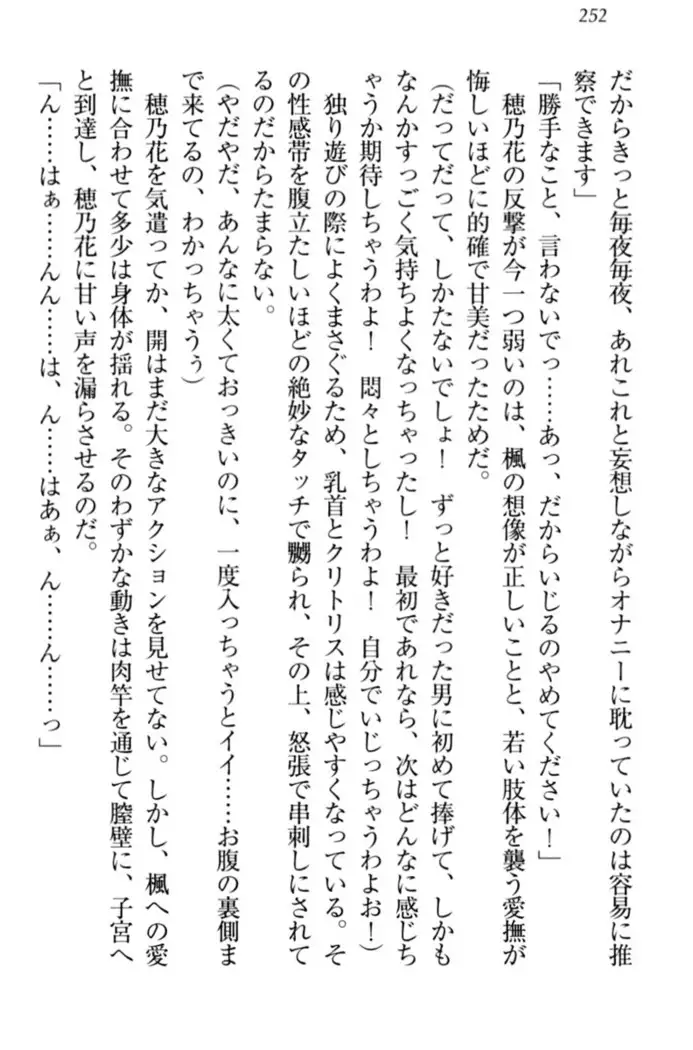 252
だからきっと毎夜毎夜、あれこれと妄想しながらオナニーに耽っていたのは容易に推
察できます」
「勝手なこと、言わないでっ……あっ、だからいじるのやめてください!」
　穂乃花の反撃が今一つ弱いのは、楓の想像が正しいことと、若い肢体を襲う愛撫が
悔しいほどに的確で甘美だったためだ。
（だってだって、しかたないでしょ！　ずっと好きだった男に初めて捧げて、しかも
なんかすっごく気持ちよくなっちゃったし！　最初であれなら、次はどんなに感じち
ゃうか期待しちゃうわよ！　悶々としちゃうわよ！　自分でいじっちゃうわよお！）
　独り遊びの際によくまさぐるため、乳首とクリトリスは感じやすくなっている。そ
の性感帯を腹立たしいほどの絶妙なタッチで嬲られ、その上、怒張で串刺しにされて
るのだからたまらない。
（やだやだ、あんなに太くておっきいのに、一度入っちゃうとイイ……お腹の裏側ま
で来てるの、わかっちゃうぅ）
　穂乃花を気遣ってか、開はまだ大きなアクションを見せてない。しかし、楓への愛
撫に合わせて多少は身体が揺れる。そのわずかな動きは肉竿を通じて膣壁に、子宮へ
と到達し、穂乃花に甘い声を漏らさせるのだ。
「ん……はぁ……んん……は、ん……はあぁ、ん……ん……っ」